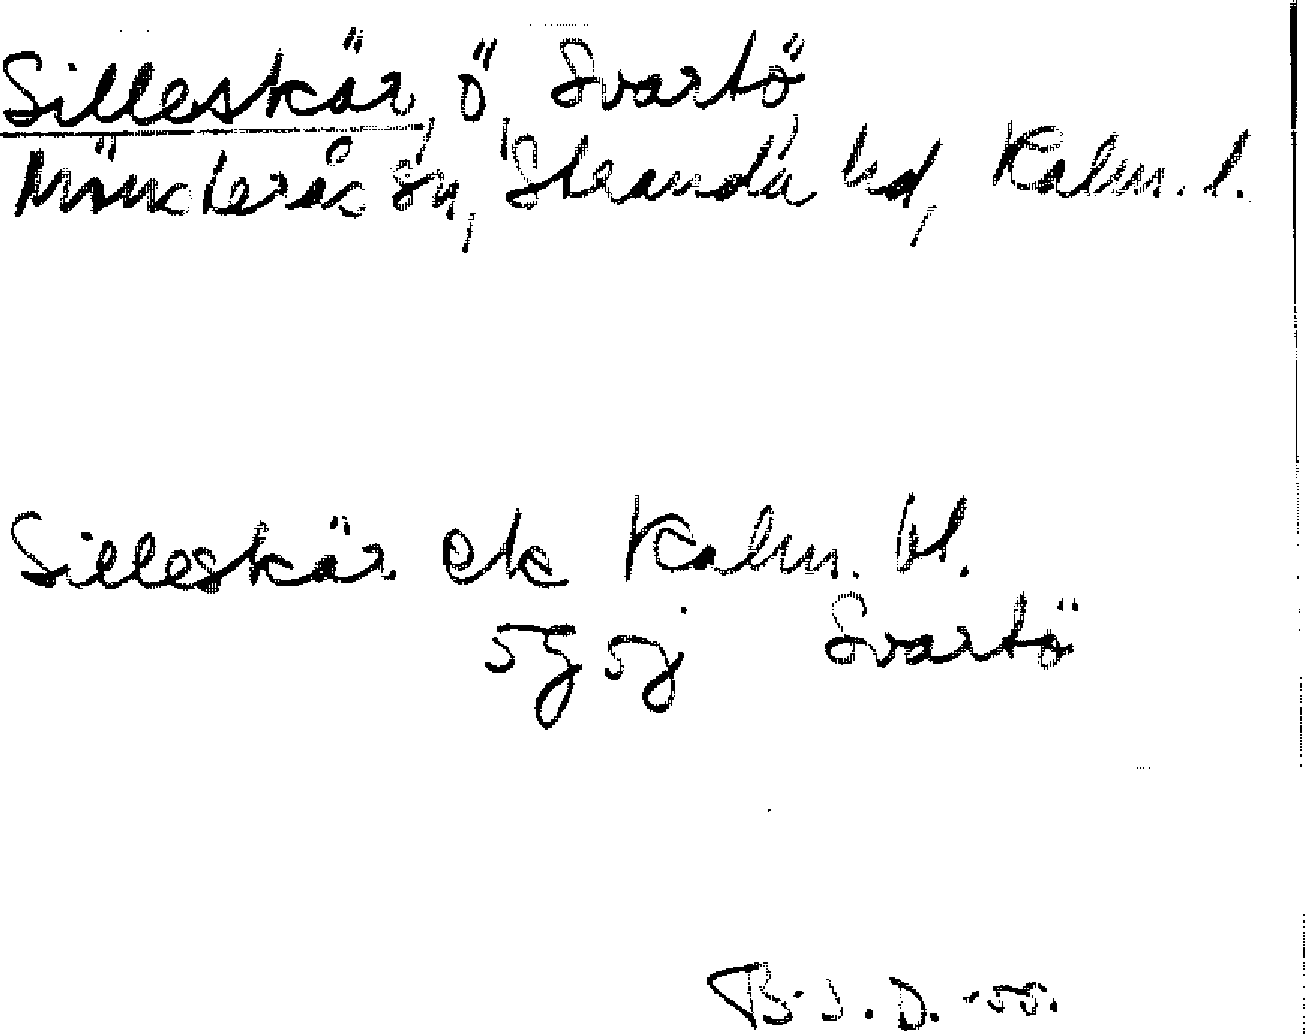 Silleskär, ö, Svartö,
Mönsterås sn, Stranda hd, Kalm. l.
Silleskär ek Kalm. bl.
5g 5j Svartö
B. J. D. -55.